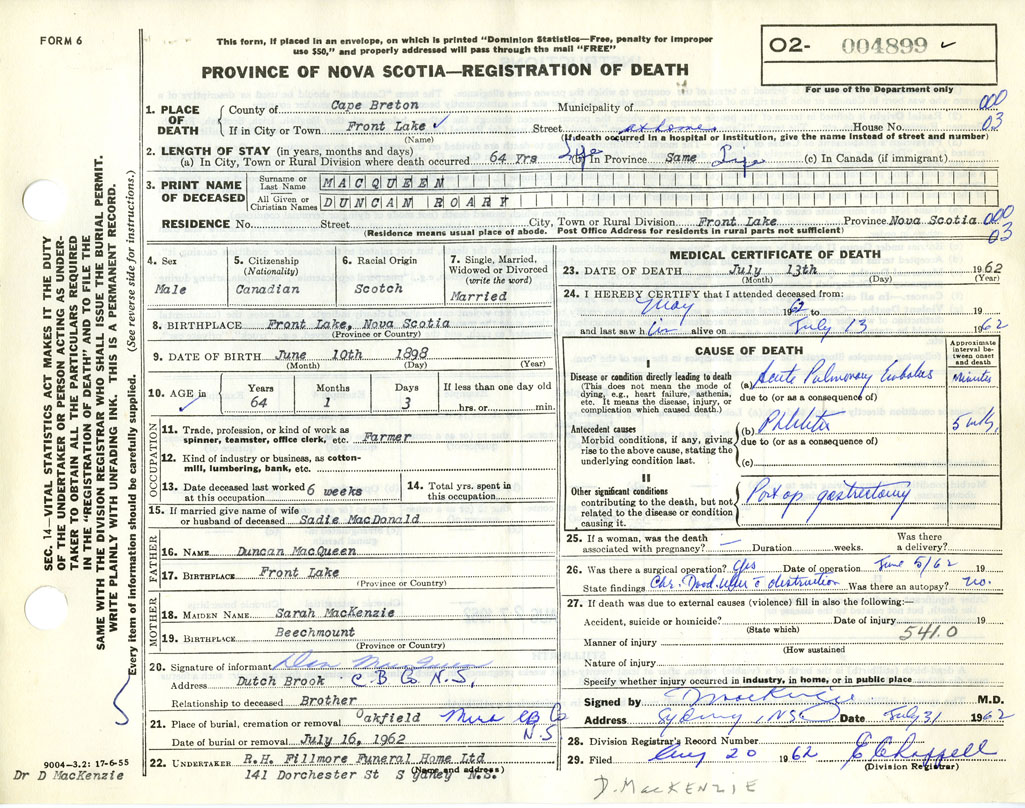 FORM 6
This form, if placed in an envelope, on which is printed "Dominion Statistics—Free, penalty for improper
use $50," and properly addressed will pass through the mail "FREE"
PROVINCE OF NOVA SCOTIA—REGISTRATION OF DEATH
O2- 004899 ✓
For use of the Department only
1. PLACE OF DEATH
County of Cape Breton Municipality of 000
If in City or Town Front Lake ✓ Street at home House No. 03
(Name) (If death occurred in a hospital or institution, give the name instead of street and number)
2. LENGTH OF STAY (in years, months and days)
(a) In City, Town or Rural Division where death occurred 64 Yrs Life (b) In Province Same Life (c) In Canada (if immigrant)
3. PRINT NAME OF DECEASED
Surname or Last Name MACQUEEN
All Given or Christian Names DUNCAN ROARY
RESIDENCE No. Street City, Town or Rural Division Front Lake Province Nova Scotia 000
(Residence means usual place of abode. Post Office Address for residents in rural parts not sufficient) 03
4. Sex
Male
5. Citizenship
(Nationality)
Canadian
6. Racial Origin
Scotch
7. Single, Married,
Widowed or Divorced
(write the word)
Married
8. BIRTHPLACE Front Lake, Nova Scotia
(Province or Country)
9. DATE OF BIRTH June 10th 1898
(Month) (Day) (Year)
10. AGE in ✓
Years Months Days If less than one day old
64 1 3 hrs. or min.
OCCUPATION
11. Trade, profession, or kind of work as
spinner, teamster, office clerk, etc. Farmer
12. Kind of industry or business, as cotton-
mill, lumbering, bank, etc.
13. Date deceased last worked
at this occupation 6 weeks
14. Total yrs. spent in
this occupation
15. If married give name of wife
or husband of deceased Sadie MacDonald
FATHER
16. NAME Duncan MacQueen
17. BIRTHPLACE Front Lake
(Province or Country)
MOTHER
18. MAIDEN NAME Sarah MacKenzie
19. BIRTHPLACE Beechmount
(Province or Country)
20. Signature of informant Dan MacQueen
Address Dutch Brook C.B Co N.S,
Relationship to deceased Brother
21. Place of burial, cremation or removal Oakfield Mira CB Co
N.S
Date of burial or removal July 16, 1962
22. UNDERTAKER R.H. Fillmore Funeral Home Ltd
(Name and address)
141 Dorchester St Sydney N.S.
MEDICAL CERTIFICATE OF DEATH
23. DATE OF DEATH July 13th 1962
(Month) (Day) (Year)
24. I HEREBY CERTIFY that I attended deceased from:
May 1962 to 19
and last saw him alive on July 13 1962
CAUSE OF DEATH
Approximate
interval be-
tween onset
and death
I
Disease or condition directly leading to death
(This does not mean the mode of
dying, e.g., heart failure, asthenia,
etc. It means the disease, injury, or
complication which caused death.)
(a) Acute Pulmonary Embolas Minutes
due to (or as a consequence of)
Antecedent causes
Morbid conditions, if any, giving
rise to the above cause, stating the
underlying condition last.
(b) Phlebitis 5 wks,
due to (or as a consequence of)
(c)
II
Other significant conditions
contributing to the death, but not
related to the disease or condition
causing it.
Post op gastrectomy
25. If a woman, was the death
associated with pregnancy? — Duration weeks. Was there
a delivery?
26. Was there a surgical operation? Yes Date of operation June 5/62 19
State findings Chr. Duod. ulcer c obstruction Was there an autopsy? no.
27. If death was due to external causes (violence) fill in also the following:—
Accident, suicide or homicide? Date of injury 19
(State which) 541.0
Manner of injury
(How sustained
Nature of injury
Specify whether injury occurred in industry, in home, or in public place
Signed by D MacKenzie M.D.
Address Sydney, NS Date July 31 1962
28. Division Registrar's Record Number
29. Filed Aug 20 1962 E C Chappell
(Division Registrar)
D. MACKENZIE
SEC. 14—VITAL STATISTICS ACT MAKES IT THE DUTY
OF THE UNDERTAKER OR PERSON ACTING AS UNDER-
TAKER TO OBTAIN ALL THE PARTICULARS REQUIRED
IN THE "REGISTRATION OF DEATH" AND TO FILE THE
SAME WITH THE DIVISION REGISTRAR WHO SHALL ISSUE THE BURIAL PERMIT.
WRITE PLAINLY WITH UNFADING INK. THIS IS A PERMANENT RECORD.
Every item of information should be carefully supplied. (See reverse side for instructions.)
9004-3.2: 17-6-55
Dr D MacKenzie